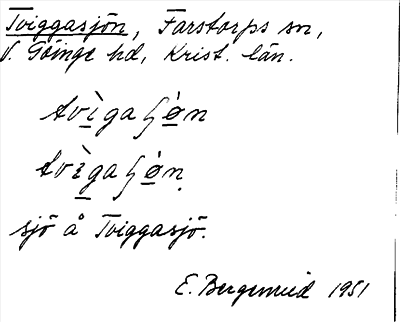 Tviggasjön, Farstorps sn,
V. Göinge hd, Krist. län.
tvìgaʃø̀n
tvìgaʃø̀n.
sjö å Tviggasjö.
E. Bergenwid 1951